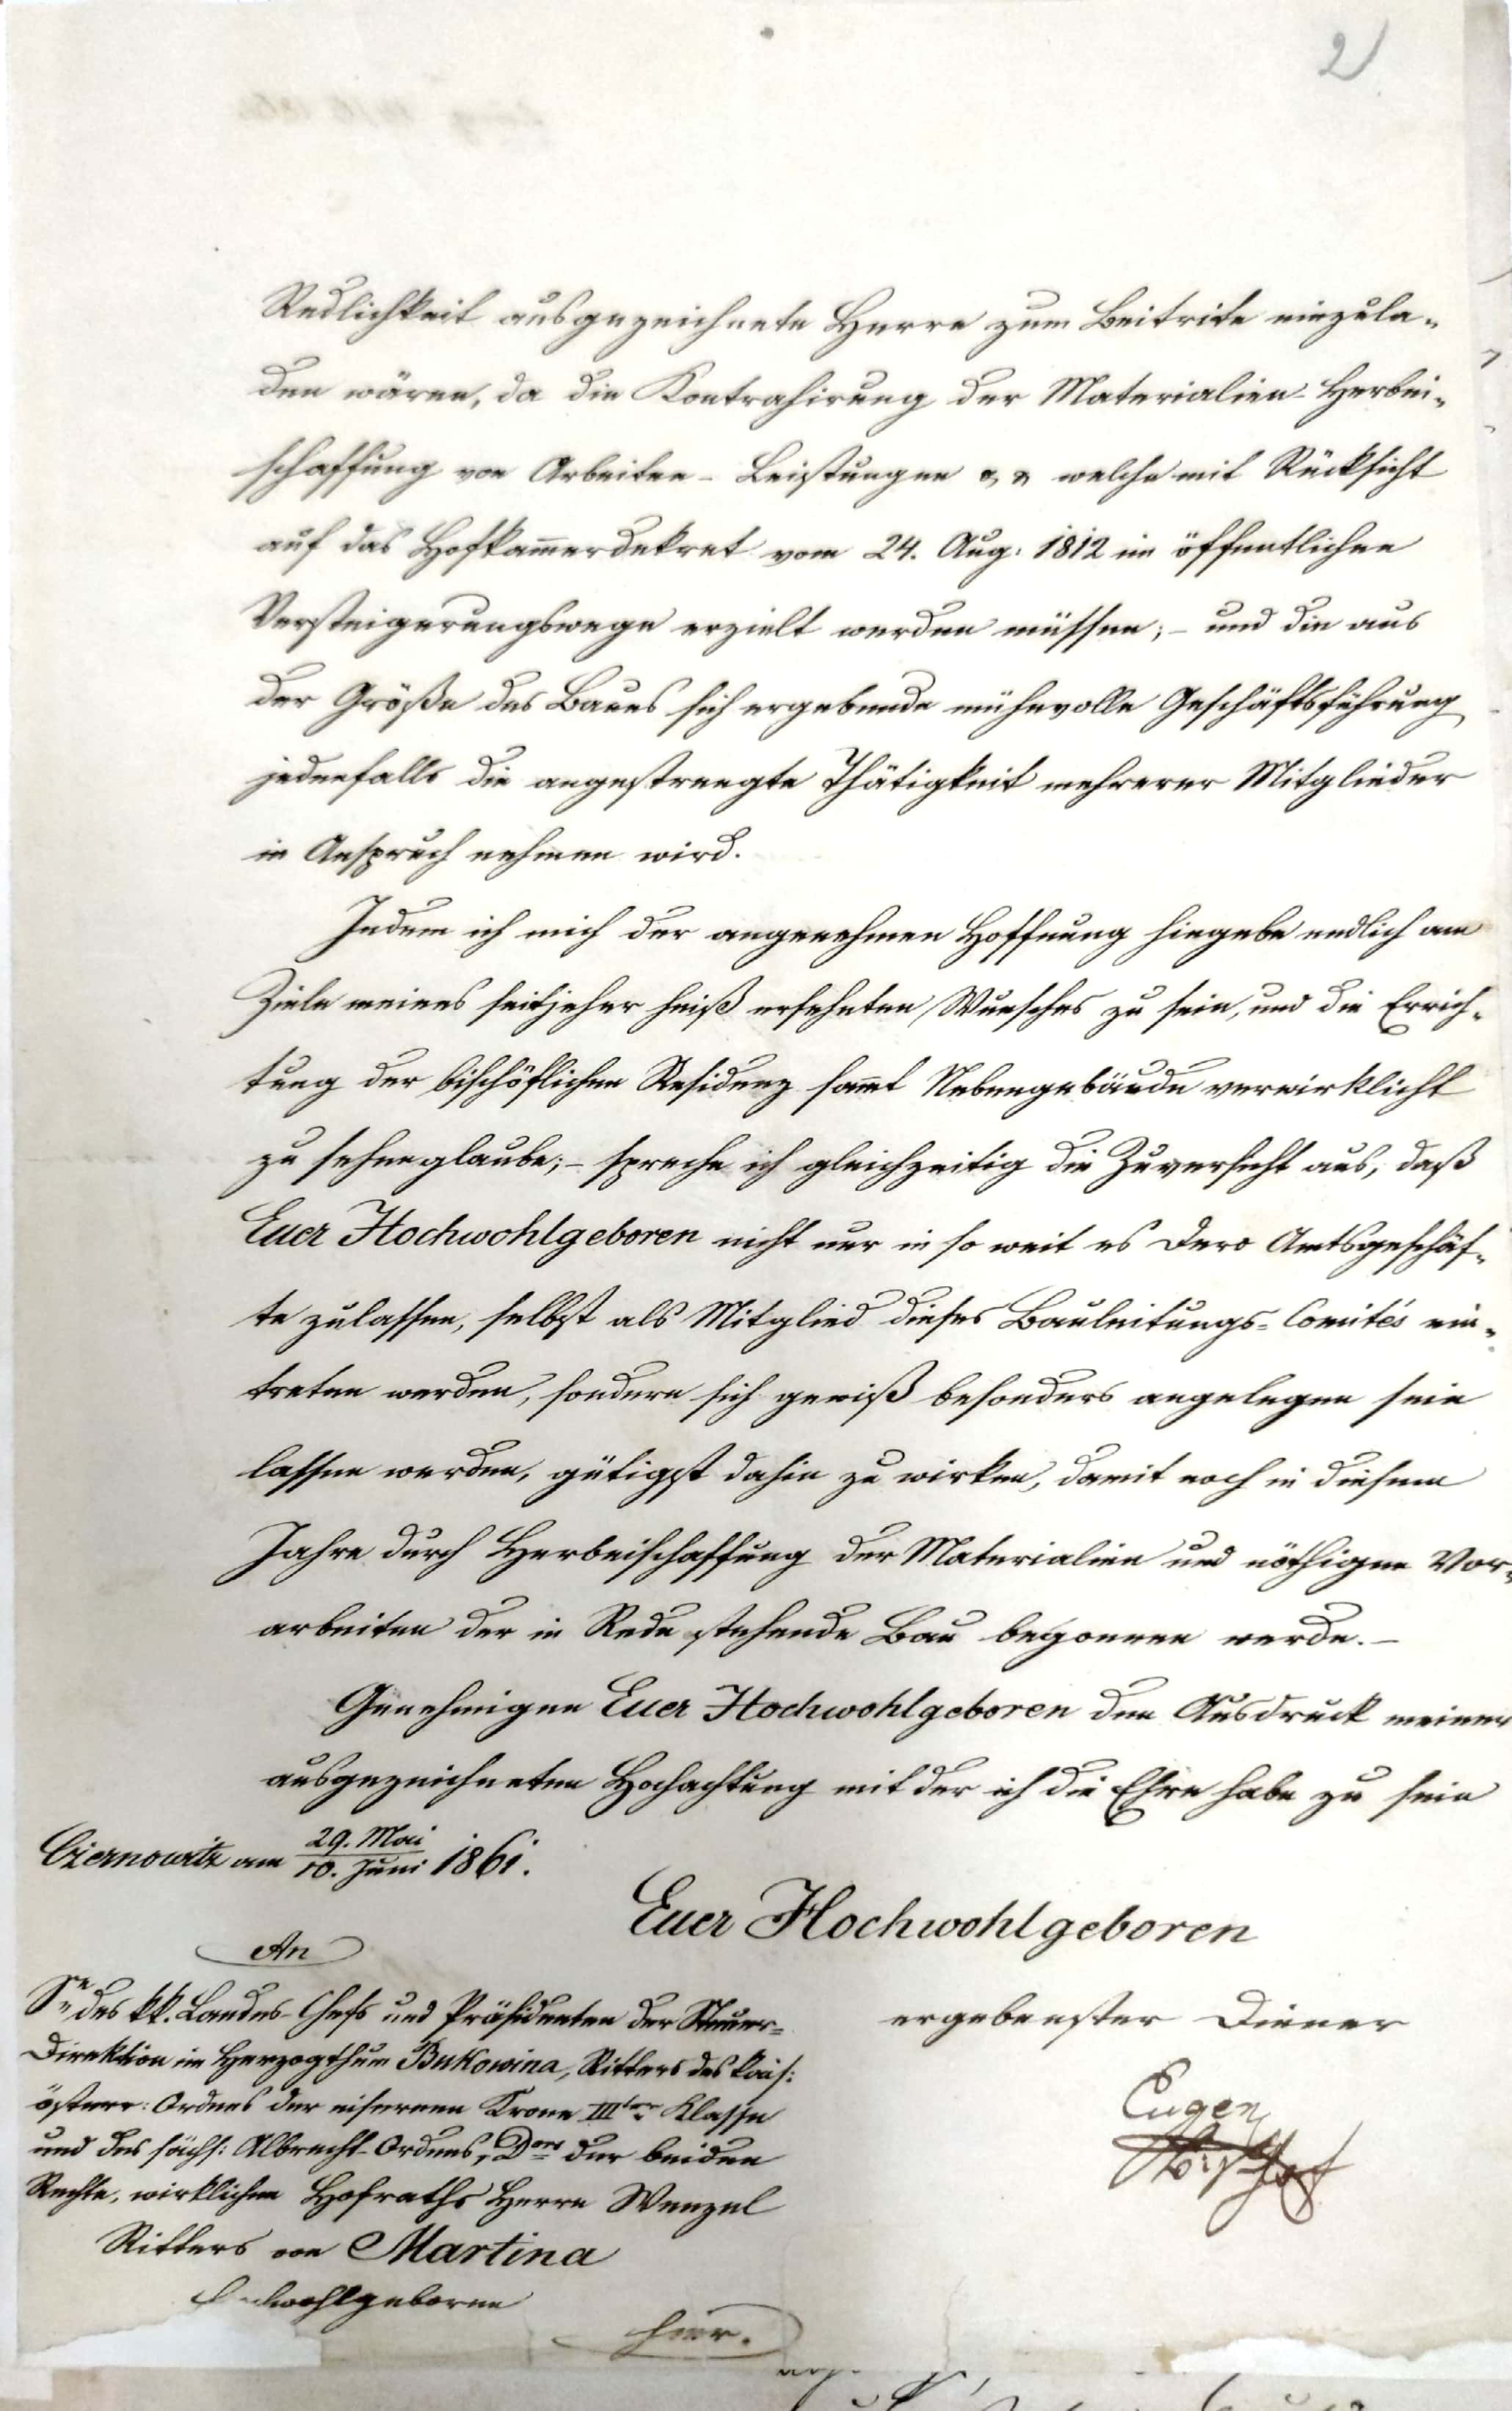 2
Redlichkeit ausgezeichnete Herrn zum Beitritte einzula-
den wären, da die Kontrahirung der Materialien-Herbei-
schaffung von Arbeiten-Leistungen & & welche mit Rücksicht
auf das Hofkam̄erdekret vom 24. Aug: 1812 im öffentlichen
Versteigerungswege erzielt werden müssen; – und die aus
der Größe des Baues sich ergebende mühevolle Geschäftsführung
jedenfalls die angestrengte Thätigkeit mehrerer Mitglieder
in Anspruch nehmen wird.
Indem ich mich der angenehmen Hoffnung hingebe endlich am
Ziele meines seitjeher heiß ersehnten Wunsches zu sein, und die Errich-
tung der bischöflichen Residenz sam̄t Nebengebäude verwirklicht
zu sehen glaube; – spreche ich gleichzeitig die Zuversicht aus, daß
Euer Hochwohlgeboren nicht nur in so weit es Dero Amtsgeschäf-
te zulassen, selbst als Mitglied dieses Bauleitungs-Comités ein-
treten werden, sondern sich gewiß besonders angelegen sein
lassen werden, gütigst dahin zu wirken, damit noch in diesem
Jahre durch Herbeischaffung der Materialien und nöthigen Vor-
arbeiten der in Rede stehende Bau begonnen werde. –
Genehmigen Euer Hochwohlgeboren den Ausdruck meiner
ausgezeichneten Hochachtung mit der ich die Ehre habe zu sein
29. Mai
Czernowitz am 10. Juni 1861.
Euer Hochwohlgeboren
An
Se des kk. Landes-Chefs und Präsidenten der Steuer-
ergebenster Diener
Direktion im Herzogthum Bukowina, Ritters des kais:
österr: Ordens der eisernen Krone IIIter Klasse
Eugen
und des sächs: Albrecht-Ordens, Dors der beiden
Bischof
Rechte, wirklichen Hofraths Herrn Wenzel
Ritters von Martina
Hochwohlgeboren
hier.